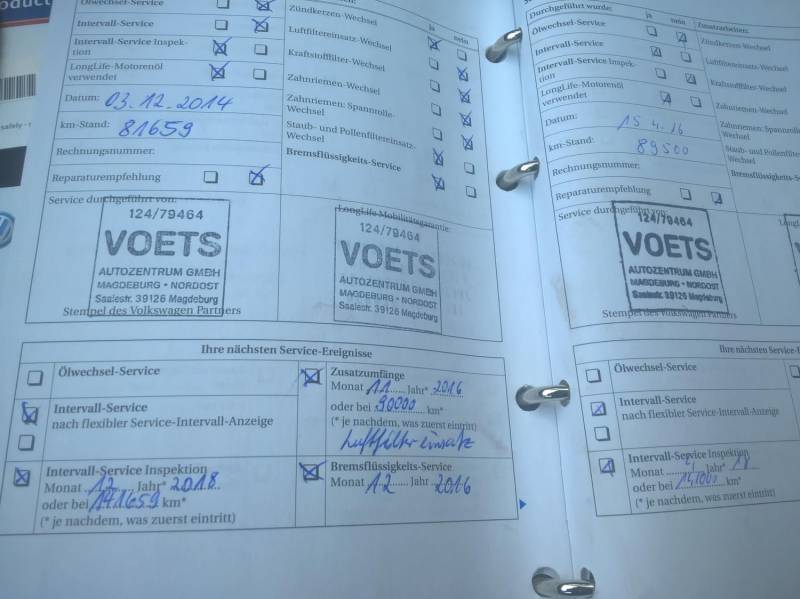 oduct
safety - t
Ölwechsel-Service
Intervall-Service
Intervall-Service Inspek-
tion
LongLife-Motorenöl
verwendet
Datum: 03.12.2014
km-Stand: 81659
Rechnungsnummer:
Reparaturempfehlung
Service durchgeführt von:
124/79464
VOETS
AUTOZENTRUM GMBH
MAGDEBURG • NORDOST
Saalestr. 39126 Magdeburg
Stempel des Volkswagen Partners
ja nein
Zündkerzen-Wechsel
Luftfiltereinsatz-Wechsel
Kraftstofffilter-Wechsel
Zahnriemen-Wechsel
Zahnriemen: Spannrolle-
Wechsel
Staub- und Pollenfiltereinsatz-
Wechsel
Bremsflüssigkeits-Service
LongLife Mobilitätsgarantie:
124/79464
VOETS
AUTOZENTRUM GMBH
MAGDEBURG • NORDOST
Saalestr. 39126 Magdeburg
Ihre nächsten Service-Ereignisse
Ölwechsel-Service
Intervall-Service
nach flexibler Service-Intervall-Anzeige
Intervall-Service Inspektion
Monat 12 Jahr* 2018
oder bei 141659 km*
(* je nachdem, was zuerst eintritt)
Zusatzumfänge
Monat 11 Jahr* 2016
oder bei 90000 km*
(* je nachdem, was zuerst eintritt)
Luftfiltereinsatz
Bremsflüssigkeits-Service
Monat 12 Jahr 2016
Durchgeführt wurde:
ja nein Zusatzarbeiten:
Ölwechsel-Service
Intervall-Service
Intervall-Service Inspek-
tion
LongLife-Motorenöl
verwendet
Datum: 15.4.16
km-Stand: 89500
Rechnungsnummer:
Reparaturempfehlung
Service durchgeführt von:
124/79464
VOETS
AUTOZENTRUM GMBH
MAGDEBURG • NORDOST
Saalestr. 39126 Magdeburg
Stempel des Volkswagen Partners
Zündkerzen-Wechsel
Luftfiltereinsatz-Wechsel
Kraftstofffilter-Wechsel
Zahnriemen-Wechsel
Zahnriemen: Spannrolle
Wechsel
Staub- und Pollenfilter
Wechsel
Bremsflüssigkeits-S
Ihre nächsten Service-E
Ölwechsel-Service
Intervall-Service
nach flexibler Service-Intervall-Anzeige
Intervall-Service Inspektion
Monat 4 Jahr* 18
oder bei 141000 km*
(* je nachdem, was zuerst eintritt)